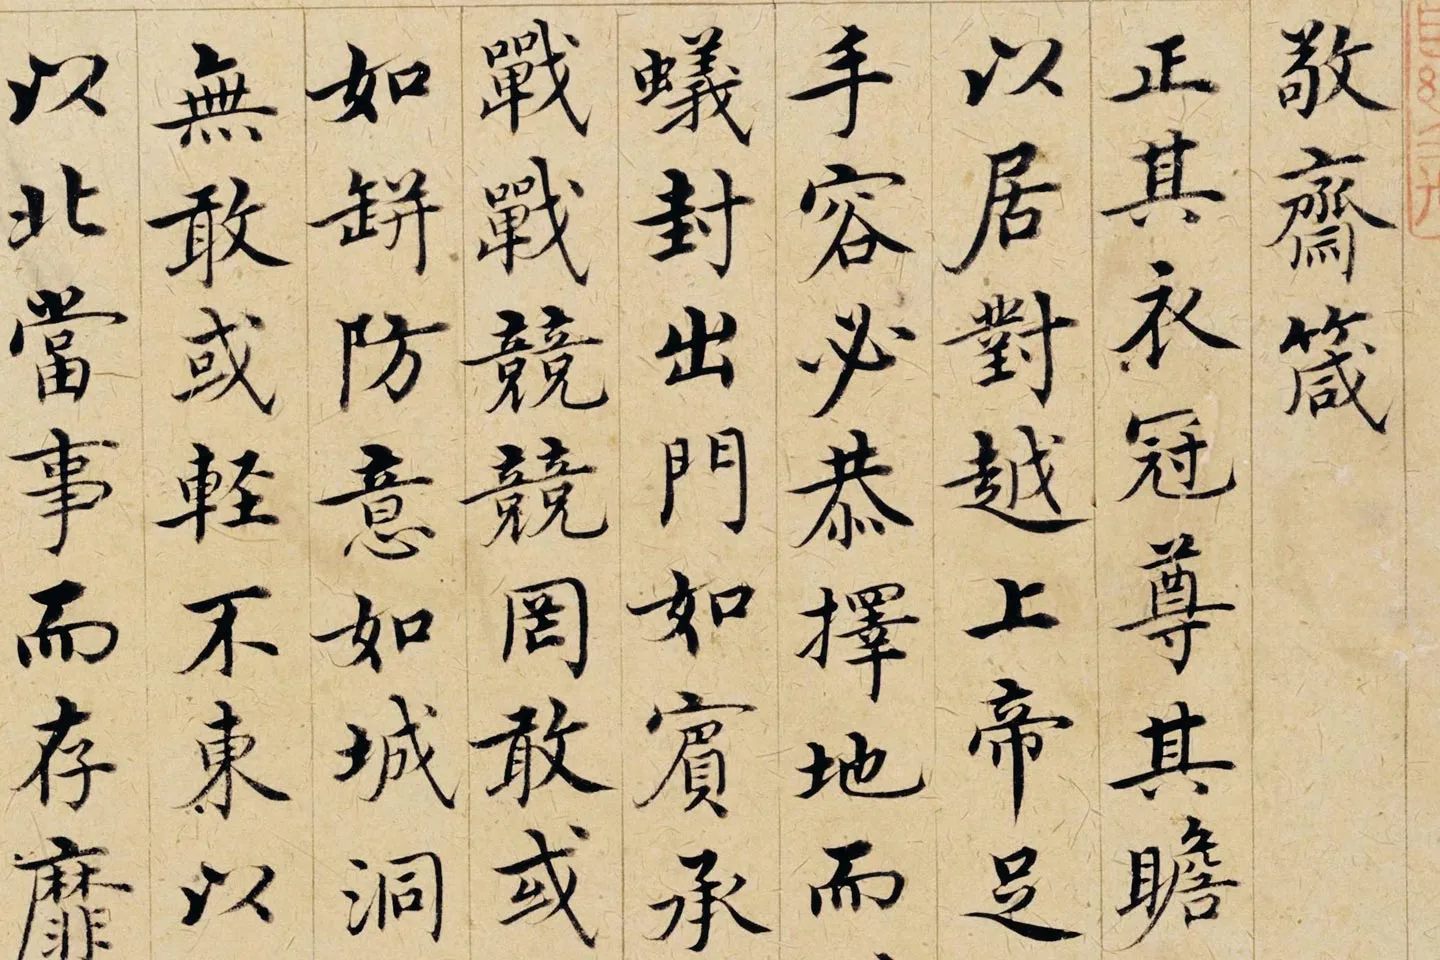 敬齋箴
正其衣冠尊其瞻
以居對越上帝足
手容必恭擇地而
蟻封出門如賓承
戰戰競競罔敢或
如缾防意如城洞
無敢或軽不東以
以北當事而存靡